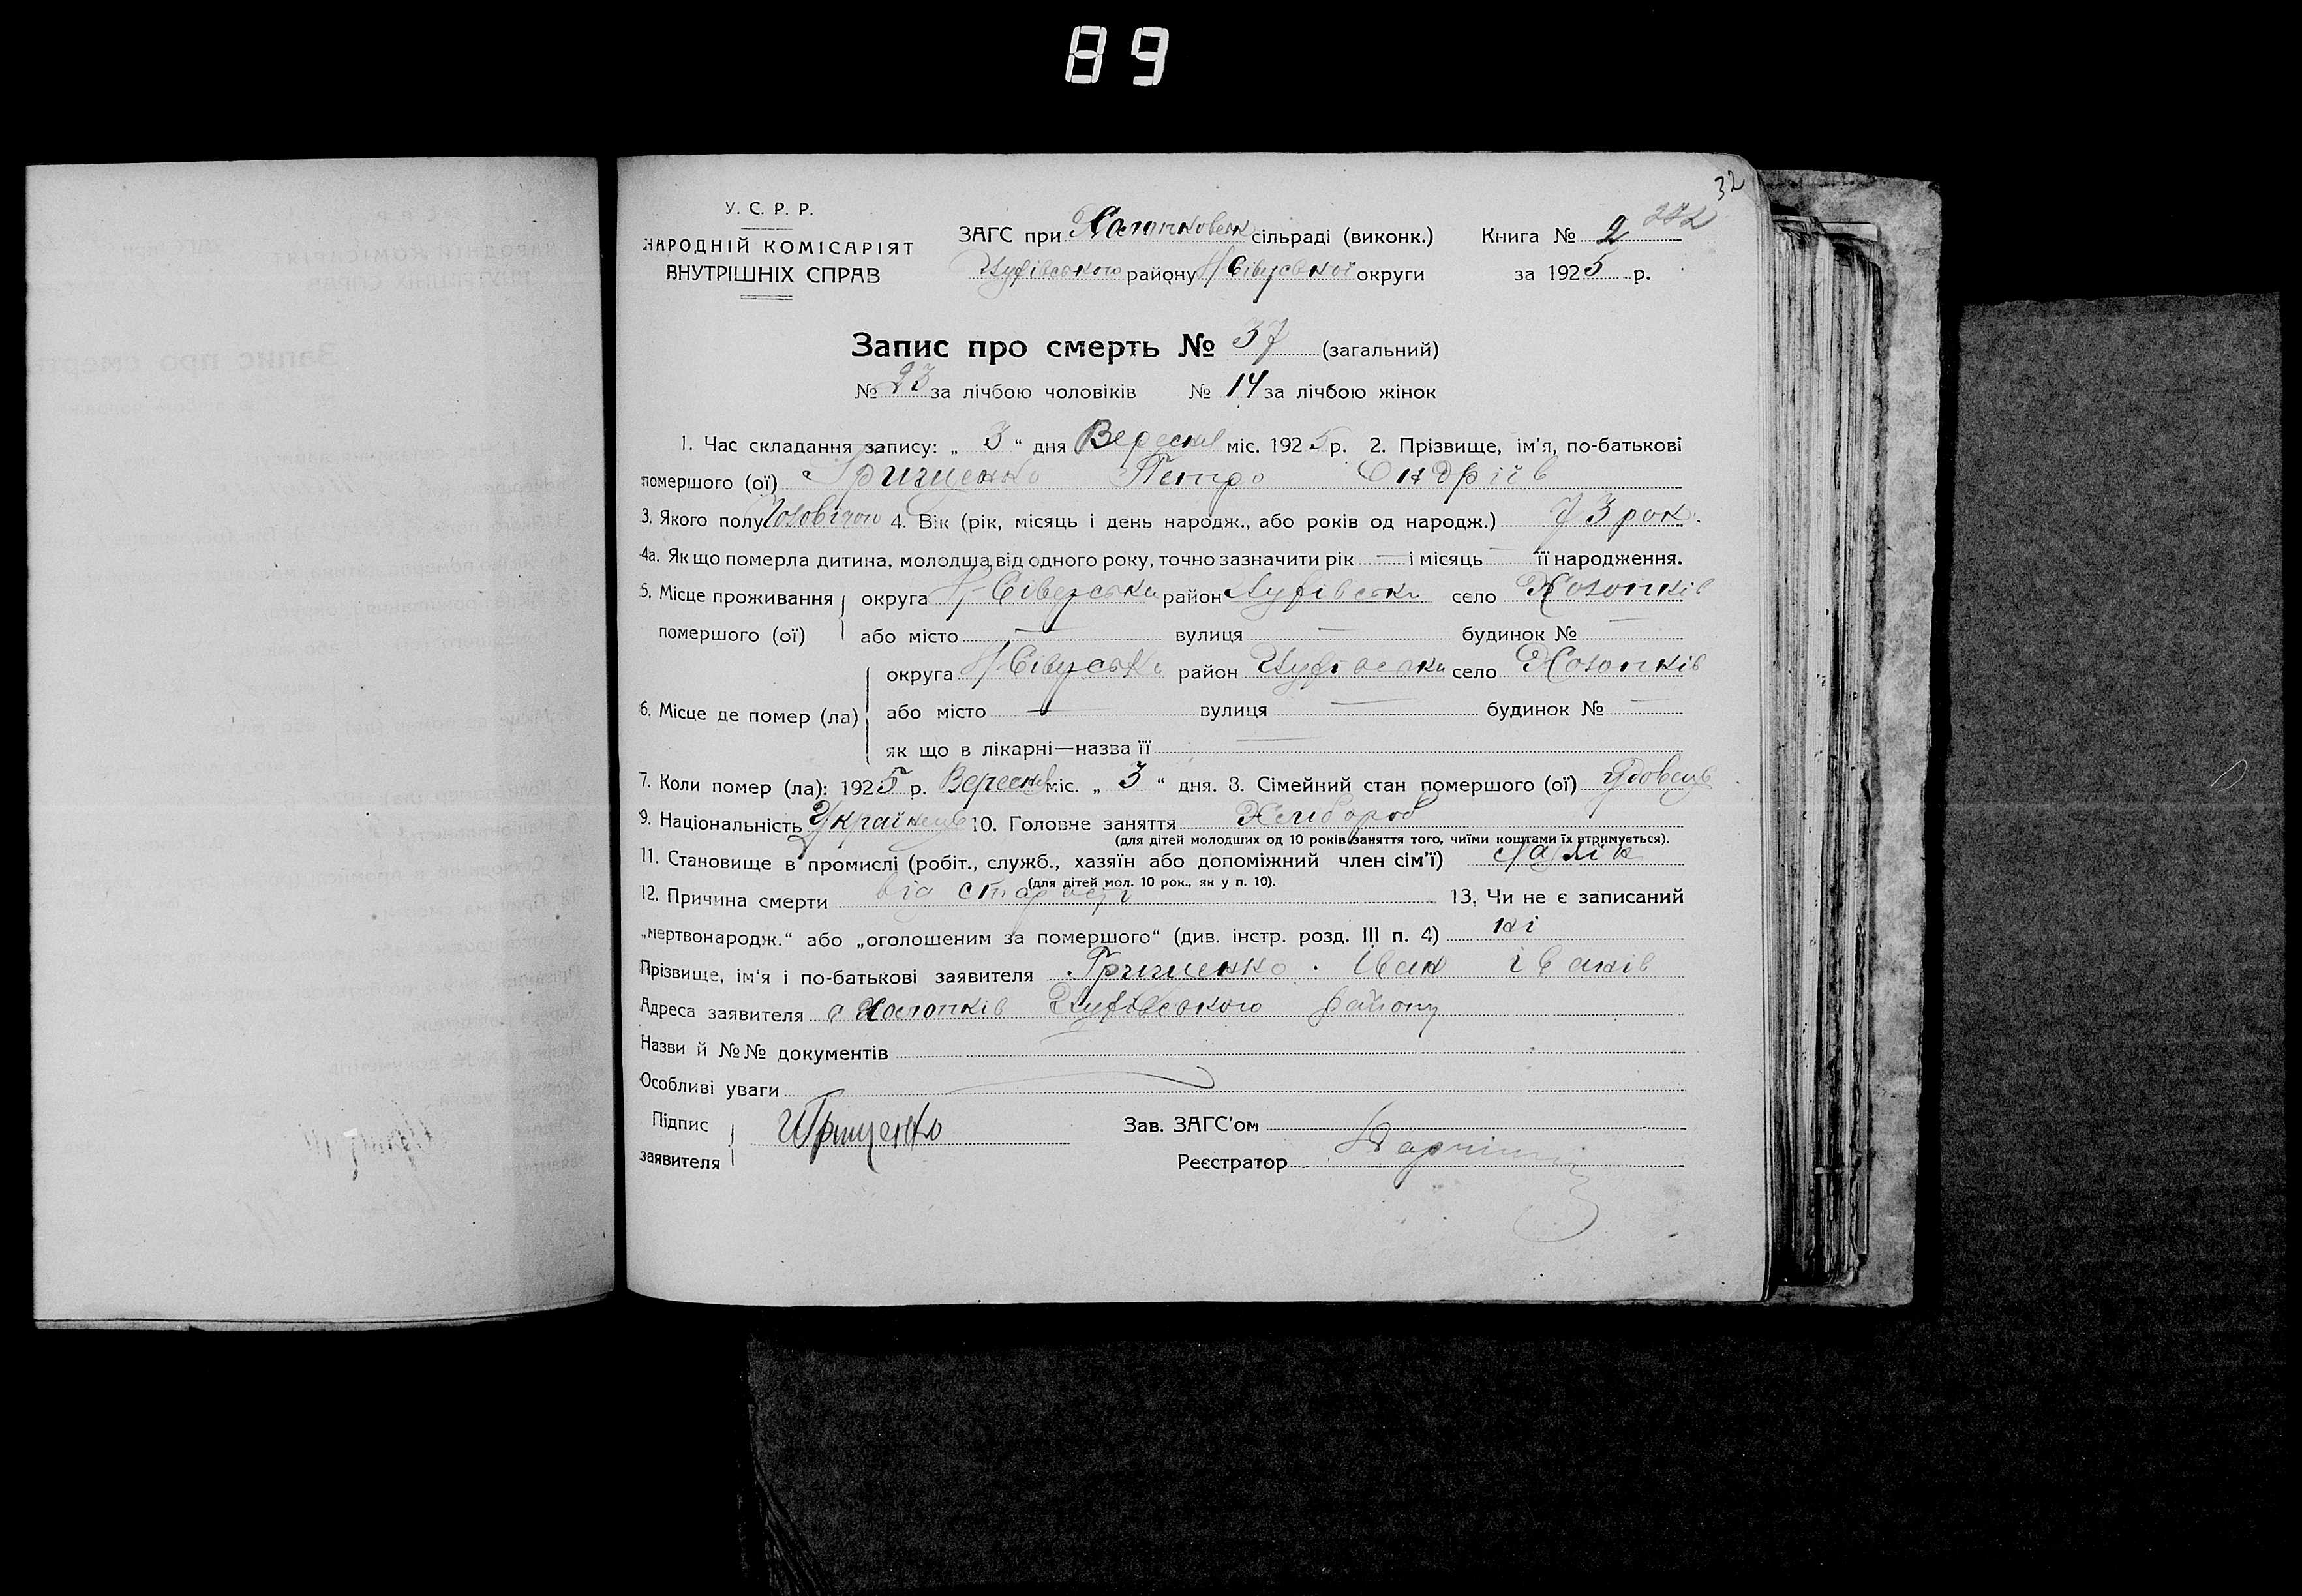 89
32
У. С. Р. Р.
НАРОДНІЙ КОМІСАРІЯТ
ВНУТРІШНІХ СПРАВ
ЗАГС при Холопковськ сільраді (виконк.) Книга № 2 272
району Н Сіверської округи за 1925 р.
Запис про смерть № 37 (загальний)
№ 23 за лічбою чоловіків № 14 за лічбою жінок
1. Час складання запису: „ 3 “ дня Вересня міс. 1925 р. 2. Прізвище, ім'я, по-батькові
помершого (ої) Грищенко Петро Андріїв
3. Якого полу 4. Вік (рік, місяць і день народж., або років од народж.) 73 рок.
4а. Як що померла дитина, молодша від одного року, точно зазначити рік — і місяць — її народження.
5. Місце проживання округа Н-Сіверська район село Холопків
помершого (ої) або місто — вулиця — будинок № —
округа Н-Сіверська район село Холопків
6. Місце де помер (ла) або місто — вулиця — будинок № —
як що в лікарні—назва її —
7. Коли помер (ла): 1925 р. Вересня міс. „ 3 “ дня. 8. Сімейний стан помершого (ої) удовець
9. Національність Українець 10. Головне заняття Хлібороб
(для дітей молодших од 10 років заняття того, чиїми коштами їх втримується).
11. Становище в промислі (робіт., служб., хазяїн або допоміжний член сім'ї) хазяїн
(для дітей мол. 10 рок., як у п. 10).
12. Причина смерти від старости 13. Чи не є записаний
„мертвонародж.“ або „оголошеним за помершого“ (див. інстр. розд. III п. 4) ні
Прізвище, ім'я і по-батькові заявителя Грищенко Іван Іванів
Адреса заявителя с Холопків району
Назви й №№ документів
Особливі уваги
Підпис Грищенко Зав. ЗАГС'ом
заявителя Реєстратор